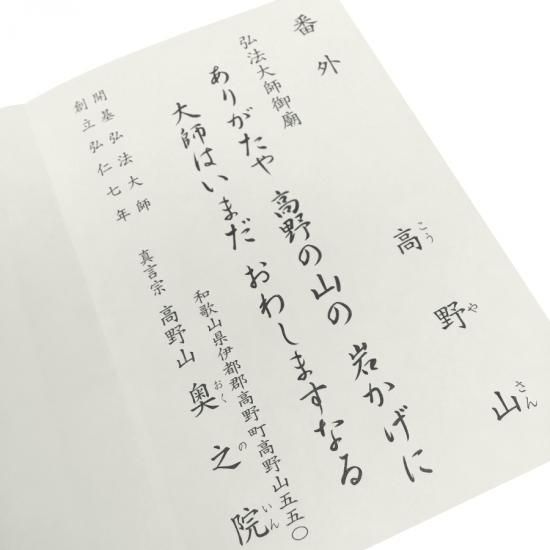 番外 高野山
こうやさん
弘法大師御廟
ありがたや 高野の山の 岩かげに
大師はいまだ おわしますなる
和歌山県伊都郡高野町高野山五五〇
真言宗 高野山 奥之院
おくのいん
開基弘法大師
創立弘仁七年